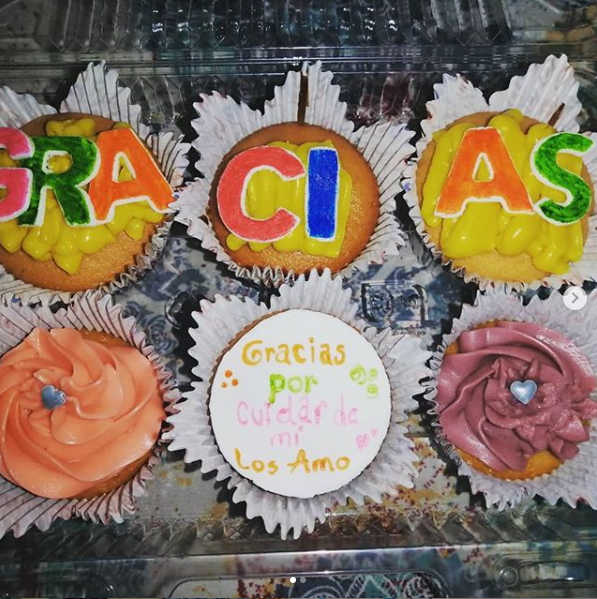 GRACIAS
Gracias
por
cuidar de
mi
Los Amo